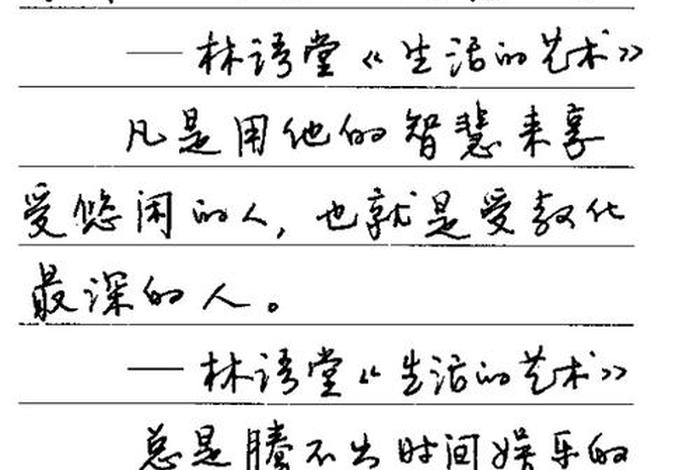 ——林语堂《生活的艺术》
凡是用他的智慧来享
受悠闲的人,也就是受教化
最深的人。
——林语堂《生活的艺术》
总是腾不出时间娱乐的